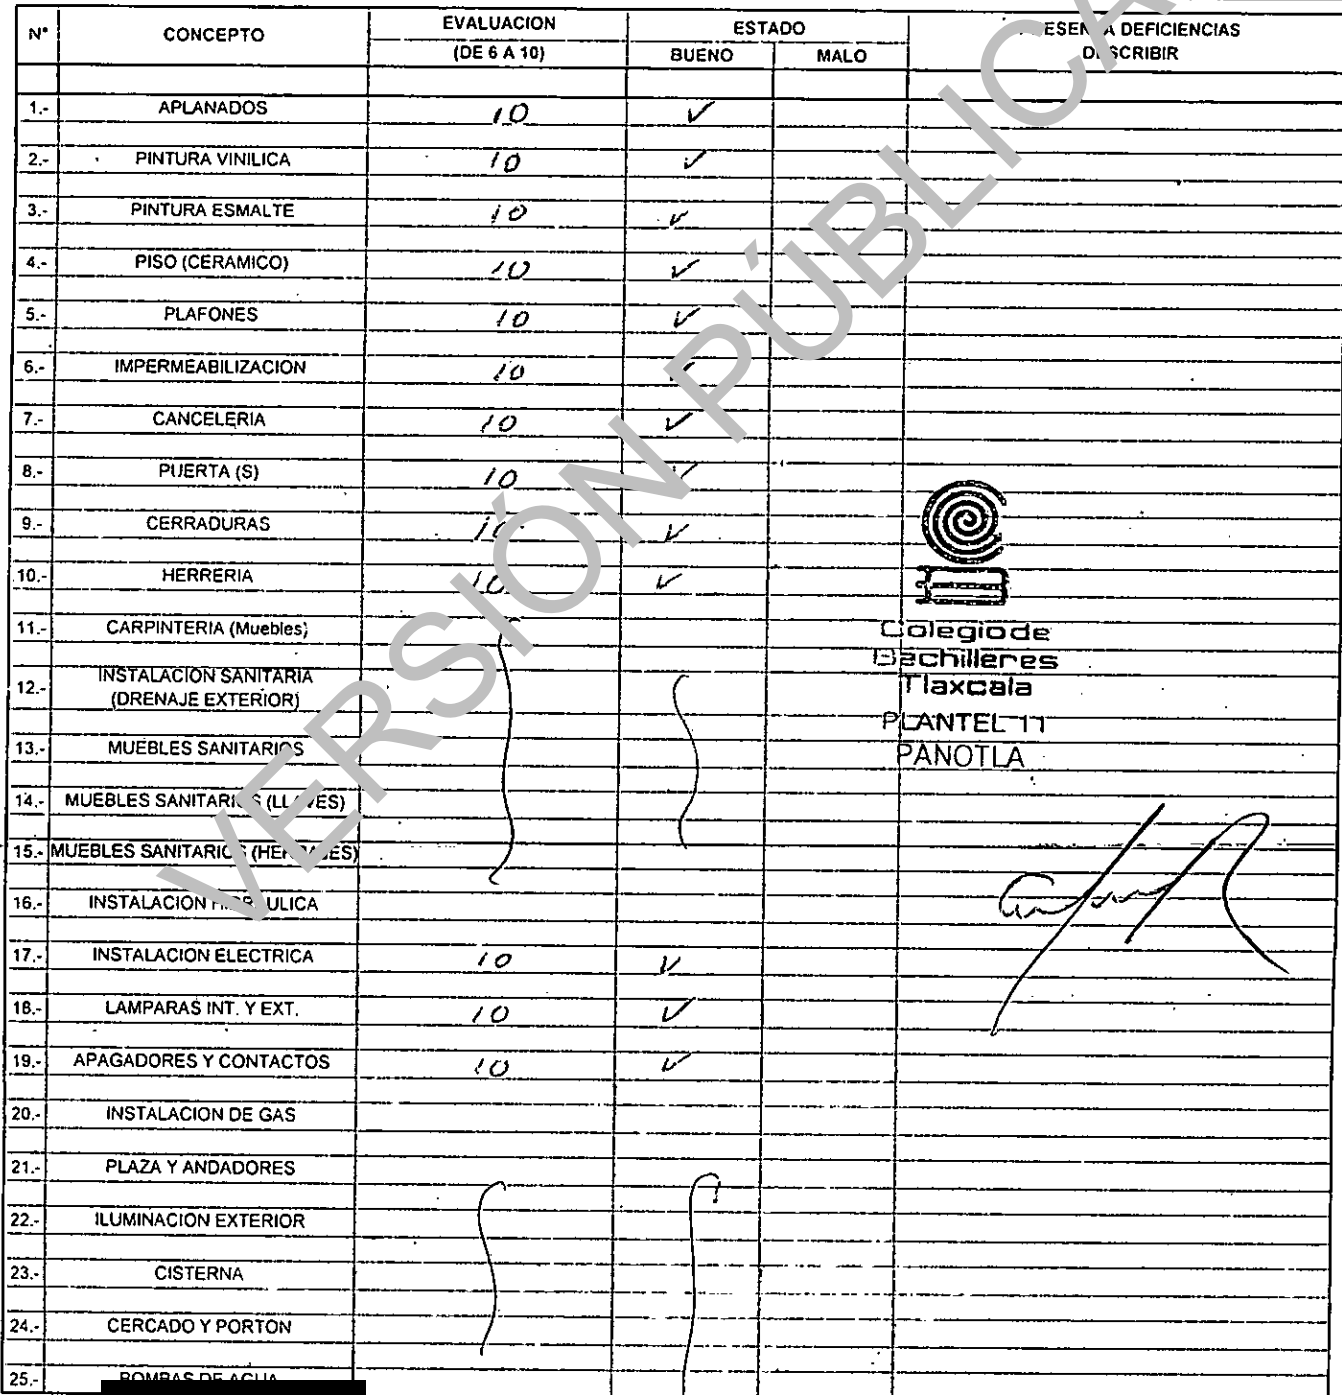 N° CONCEPTO EVALUACION (DE 6 A 10) ESTADO BUENO MALO DEFICIENCIAS
1.- APLANADOS 10 ✓
2.- PINTURA VINILICA 10 ✓
3.- PINTURA ESMALTE 10 ✓
4.- PISO (CERAMICO) 10 ✓
5.- PLAFONES 10 ✓
6.- IMPERMEABILIZACION 10 ✓
7.- CANCELERIA 10 ✓
8.- PUERTA (S) 10 ✓
9.- CERRADURAS 10 ✓
10.- HERRERIA 10 ✓
11.- CARPINTERIA (Muebles)
12.- INSTALACION SANITARIA
(DRENAJE EXTERIOR)
13.- MUEBLES SANITARIOS
14.- MUEBLES SANITARIOS (LLAVES)
15.- MUEBLES SANITARIOS (HERRAJES)
16.- INSTALACION HIDRAULICA
17.- INSTALACION ELECTRICA 10 ✓
18.- LAMPARAS INT. Y EXT. 10 ✓
19.- APAGADORES Y CONTACTOS 10 ✓
20.- INSTALACION DE GAS
21.- PLAZA Y ANDADORES
22.- ILUMINACION EXTERIOR
23.- CISTERNA
24.- CERCADO Y PORTON
25.- BOMBAS DE AGUA
Colegio de
Bachilleres
Tlaxcala
PLANTEL 11
PANOTLA
VERSIÓN PÚBLICA